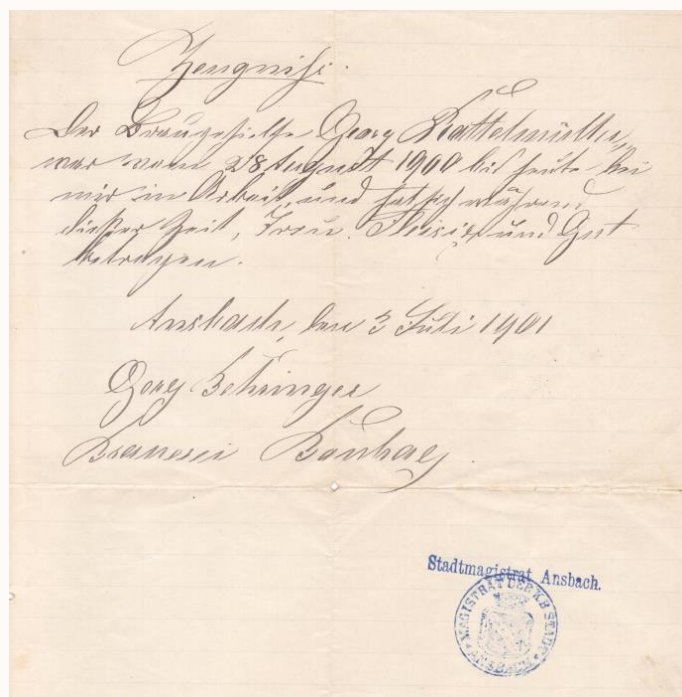 Zeugniß.
Der Braugehilfe Georg Rattelmüller,
war vom 28 August 1900 bis heute bei
mir in Arbeit, und hat sich während
dieser Zeit, Treu, Fleisig und Gut
betragen.
Ansbach, den 3 Juli 1901
Georg Behringer
Brauerei
Stadtmagistrat Ansbach.
MAGISTRAT DER K.B. STADT ANSBACH